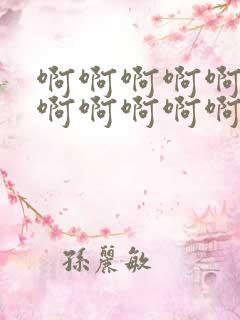 啊啊啊啊啊
啊啊啊啊啊
孫麗敏